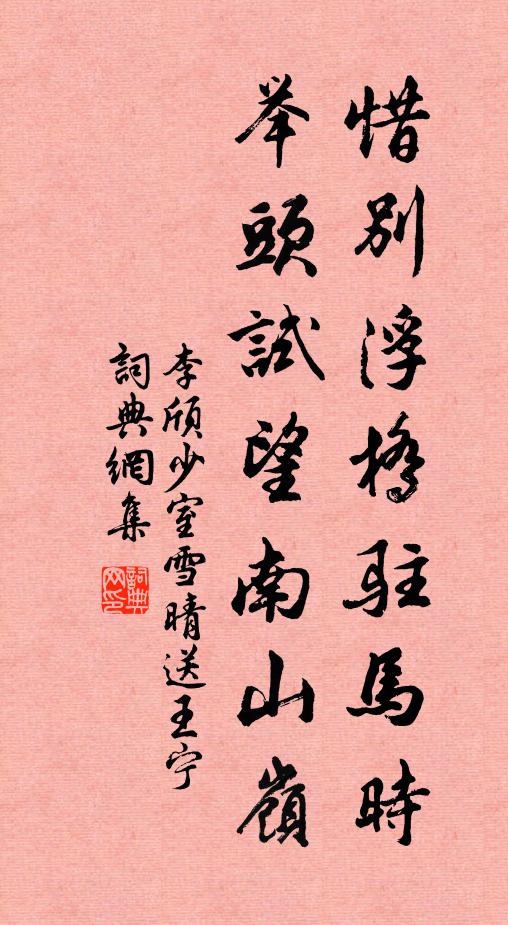 惜別浮橋駐馬時
举頭試望南山嶺
李颀少室雪晴送王宁
詞典網集
詞典网印